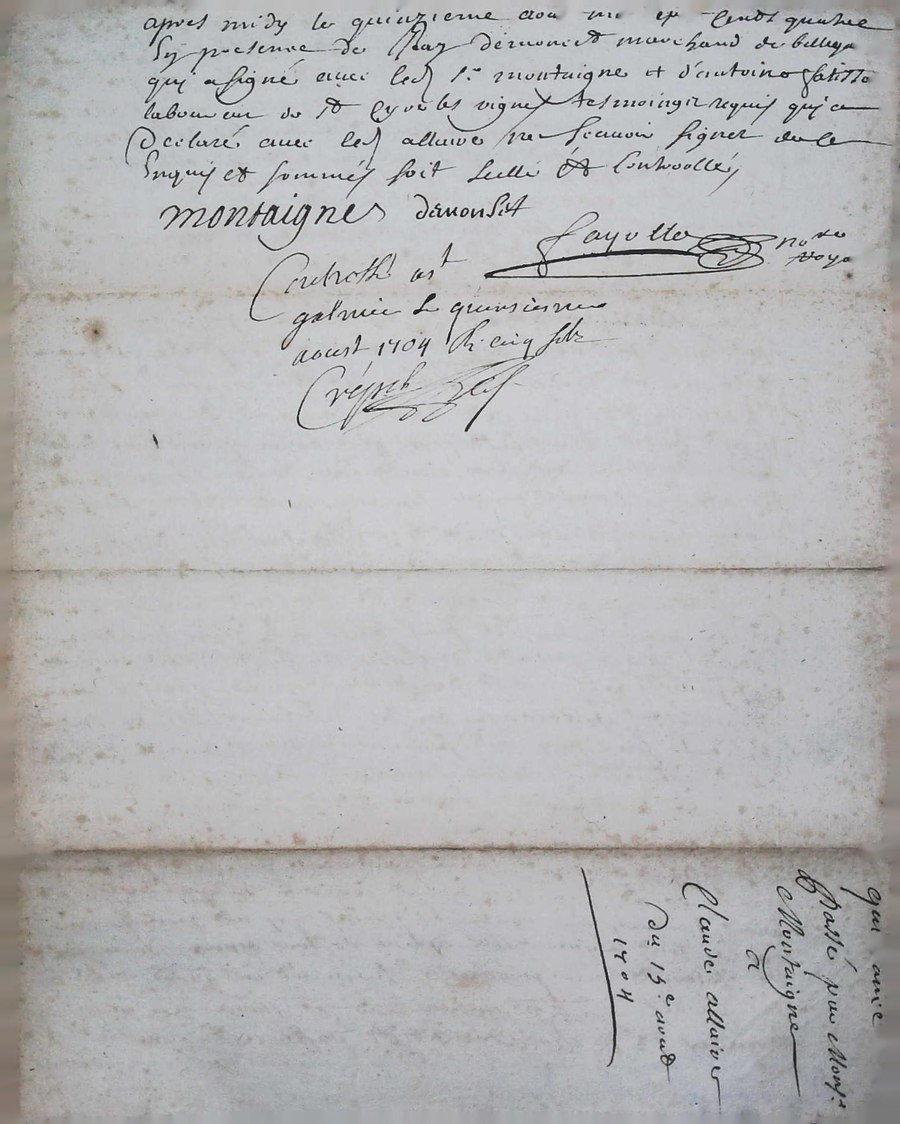 apres midy le quinzieme aou mil sept Cents quattre
En presence de Ray demonist marchand de
qui a signé avec led Sr montaigne et d'antoine
laboureur de St Cyr les vignes tesmoings requis qui a
Declaré avec led allaire ne scavoir signer de ce
Enquis et sommés soit scellé et Controollés
montaigne
fayolle nore royal
Controllé a st
galmier le quinsiesme
aoust 1704 R cinq sols
qui avec
Passé par Monsr
Montaigne
a
Claude allaire
du 15e aoust
1704